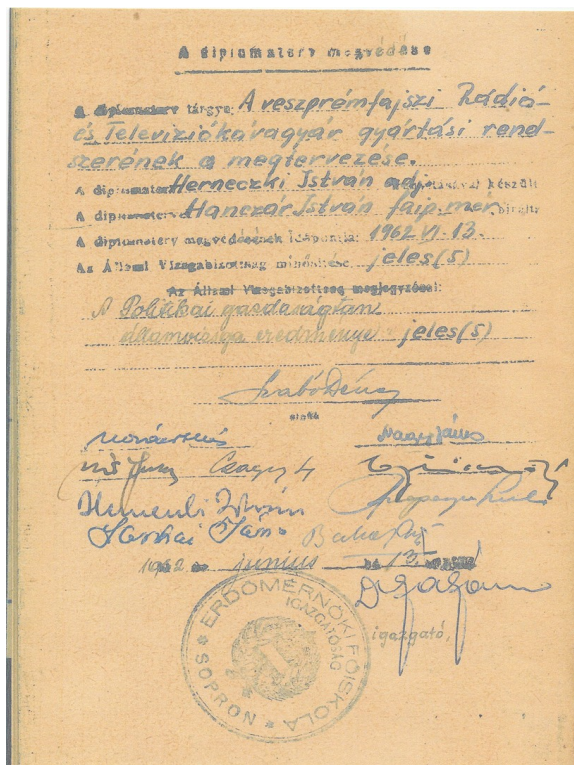 A diplomaterv megvédése
A diplomaterv tárgya: A veszprémfajszi Rádió-
és Televíziókávagyár gyártási rend-
szerének a megtervezése.
A diplomaterv Herneczki István adj. irányításával készült
A diplomatervet Hanczár István faip. mér. bírálta
A diplomaterv megvédésének időpontja: 1962 VI. 13.
Az Állami Vizsgabizottság minősítése jeles (5)
Az Állami Vizsgabizottság megjegyzései:
A Politikai gazdaságtan
államvizsga eredménye: jeles (5)
Szabó Dénes
elnök
Nagy János
István
János
1962 június 13.
igazgató,
ERDŐMÉRNÖKI FŐISKOLA
IGAZGATÓSÁG
* SOPRON *